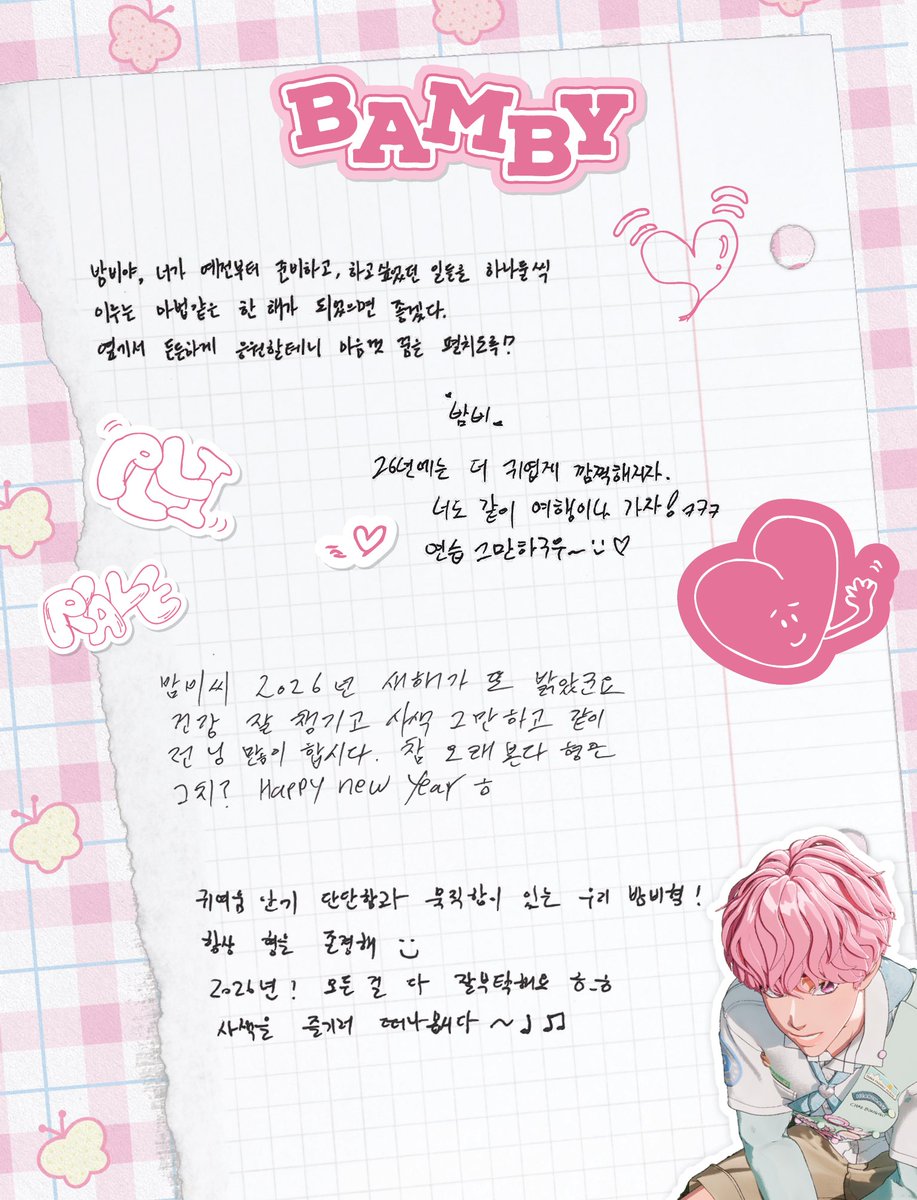 BAMBY
밤비야, 너가 예전부터 준비하고, 하고싶었던 일들을 하나둘씩
이루는 마법같은 한 해가 되었으면 좋겠다.
옆에서 든든하게 응원할테니 마음껏 꿈을 펼치도록!?
"밤비"
26년에는 더 귀엽게 깜찍해지자.
너도 같이 여행이나 가자! ㅋㅋㅋ
연습 그만하구우~ :) ♡
PLLI
RAVE
밤비씨 2026년 새해가 또 밝았군요
건강 잘 챙기고 사색 그만하고 같이
전님 많이 합시다. 참 오래본다 형은
그치? Happy new year ㅎ
귀여움 난기 단단함과 묵직함이 있는 우리 밤비형!
항상 형을 존경해 :)
2026년! 모든 걸 다 잘부탁해요 ㅎ_ㅎ
사색을 즐기러 떠나봅시다 ~♩ ♫